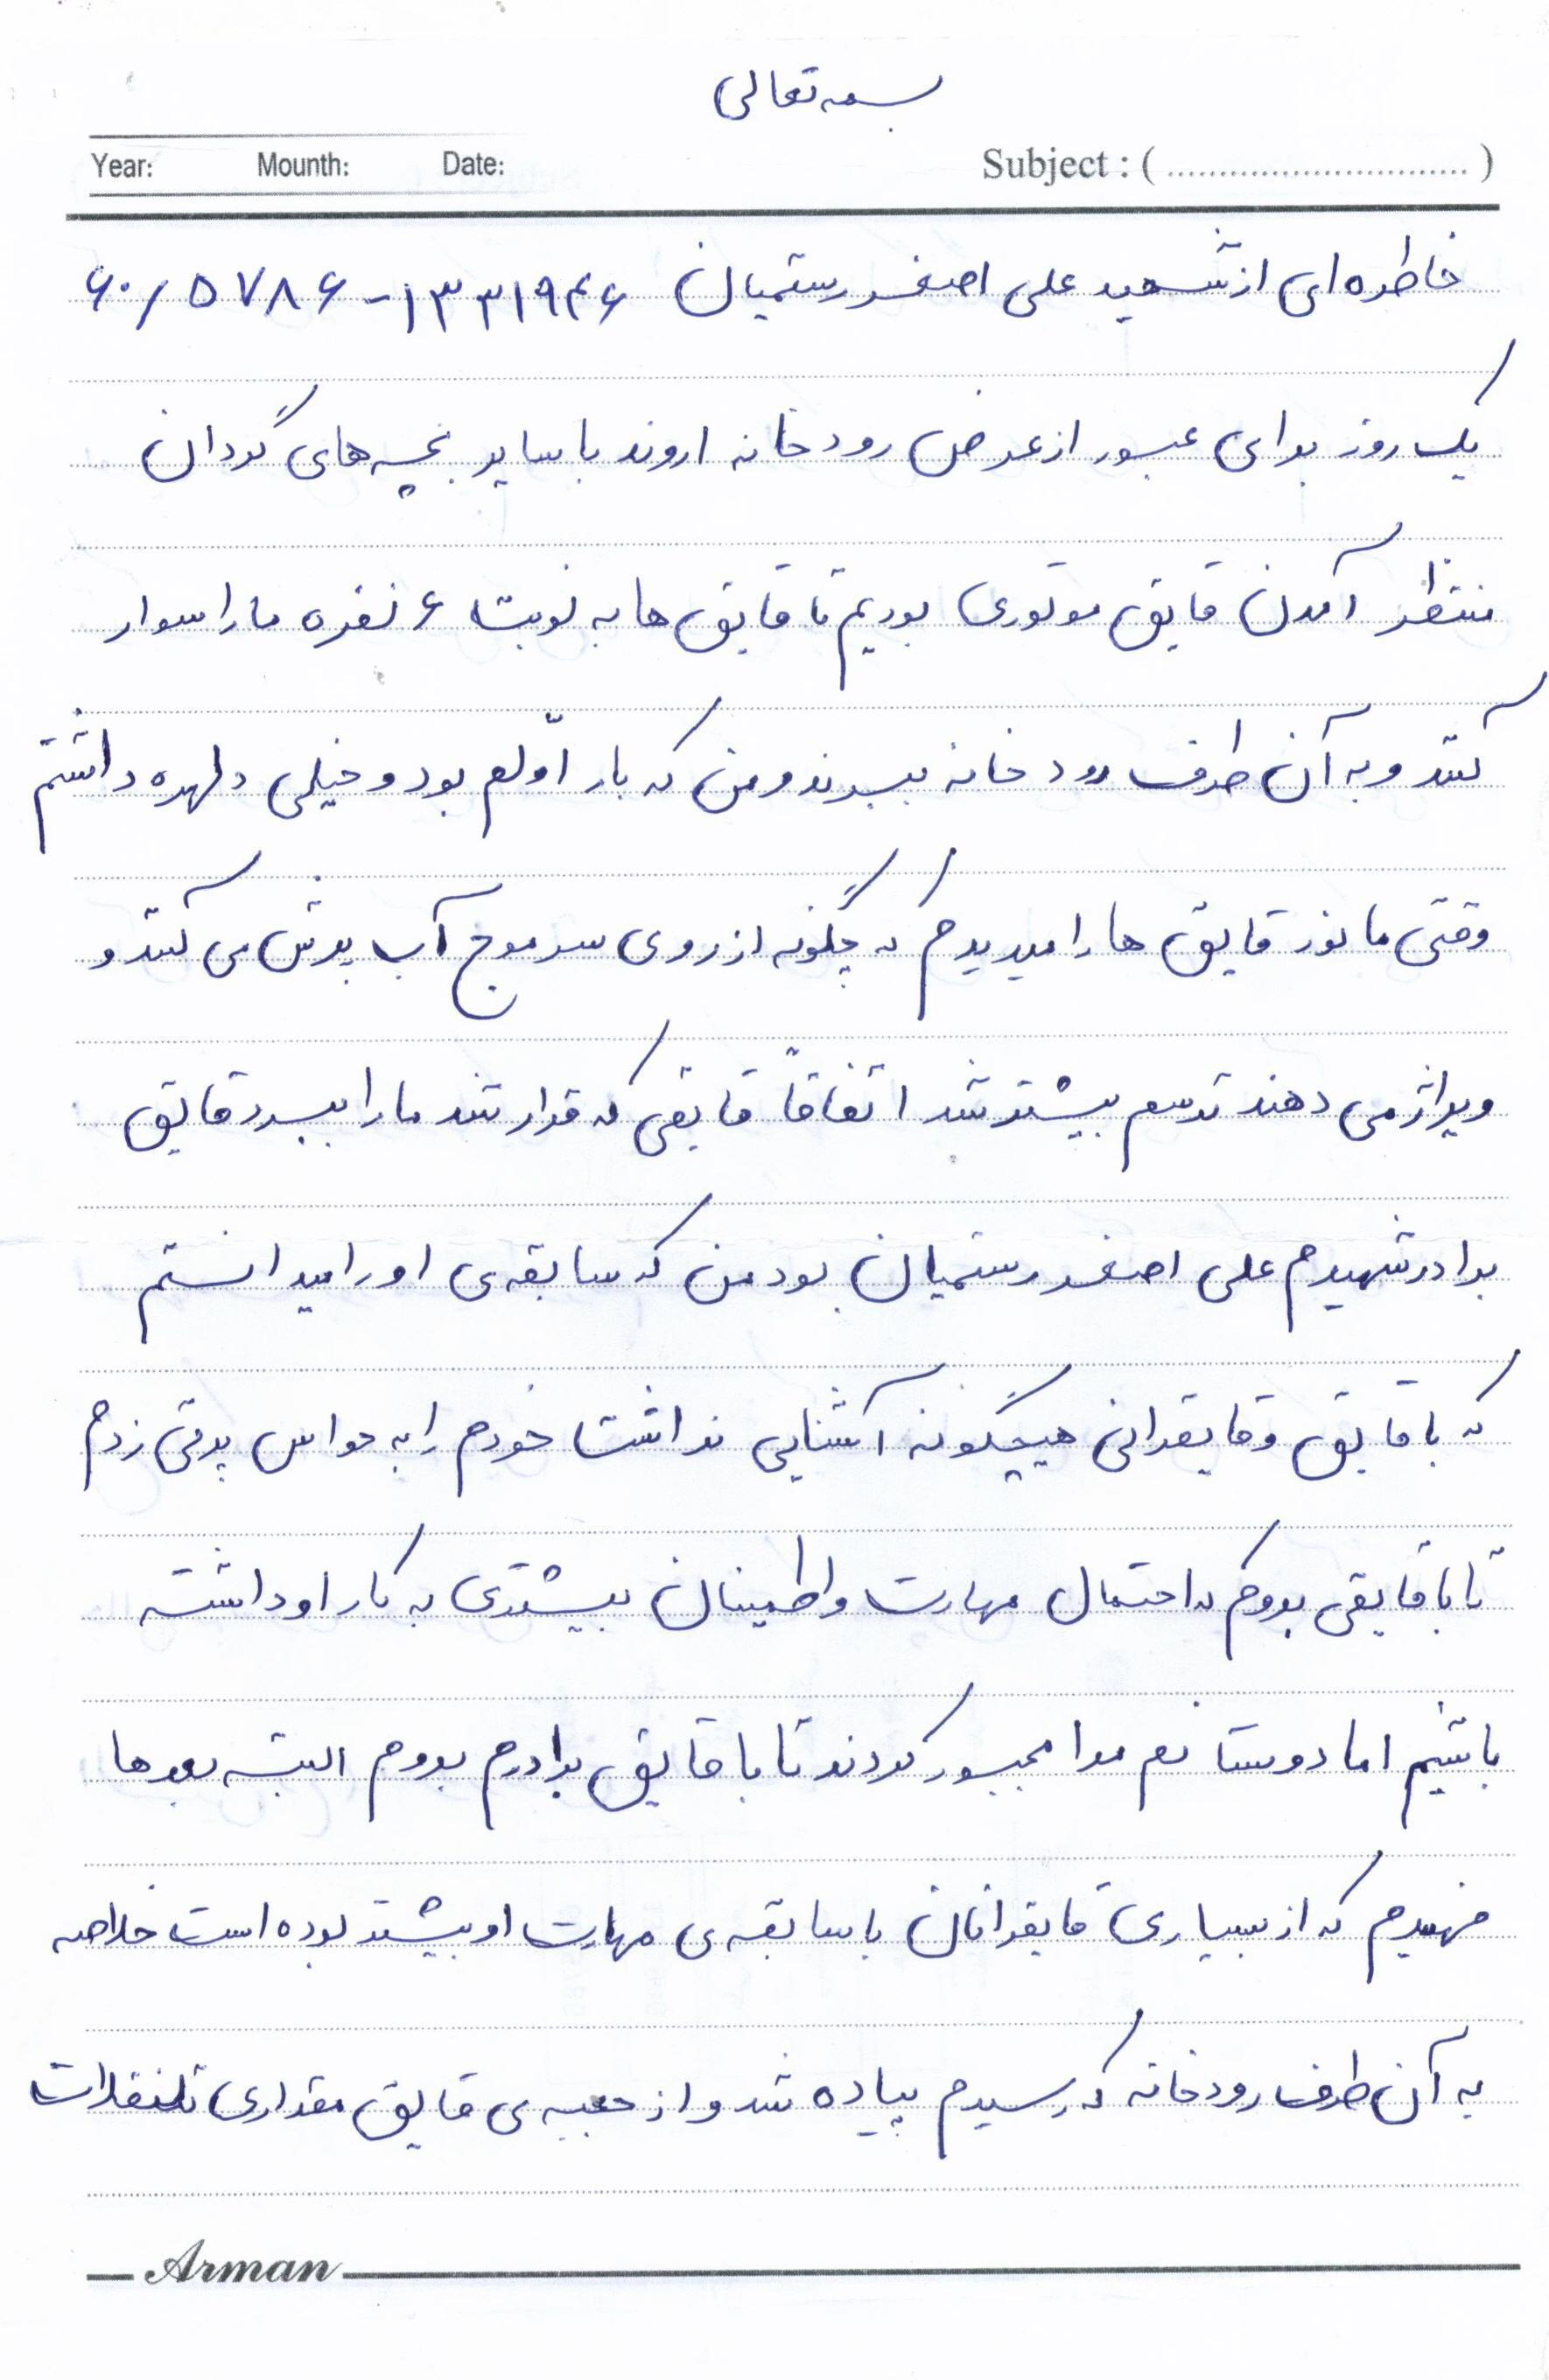 بسمه تعالی
Year: Mounth: Date: Subject : ( .............................. )
خاطره ای از شهید علی اصغر رستمیان ۱۳۳۱۹۴۶-۶۰/۵۷۸۶
یک روز برای عبور از عرض رودخانه اروند با سایر بچه های گردان
منتظر آمدن قایق موتوری بودیم تا قایق ها به نوبت ۶ نفره ما را سوار
کنند و به آن طرف رودخانه ببرند و من که بار اوّلم بود و خیلی دلهره داشتم
وقتی مانور قایق ها را میدیدم که چگونه از روی سر موج آب پرش می کنند و
ویراژ می دهند ترسم بیشتر شد اتفاقاً قایقی که قرار شد ما را ببرد قایق
برادر شهیدم علی اصغر رستمیان بود من که سابقه ی او را میدانستم
که با قایق و قایقرانی هیچگونه آشنایی نداشت خودم را به حواس پرتی زدم
تا با قایقی بروم که احتمال مهارت و اطمینان بیشتری به کار او داشته
باشیم اما دوستانم مرا مجبور کردند تا با قایق برادرم بروم البته بعدها
فهمیدم که از بسیاری قایقرانان با سابقه ی مهارت او بیشتر بوده است خلاصه
به آن طرف رودخانه که رسیدم پیاده شد و از جعبه ی قایق مقداری تنقلات
Arman